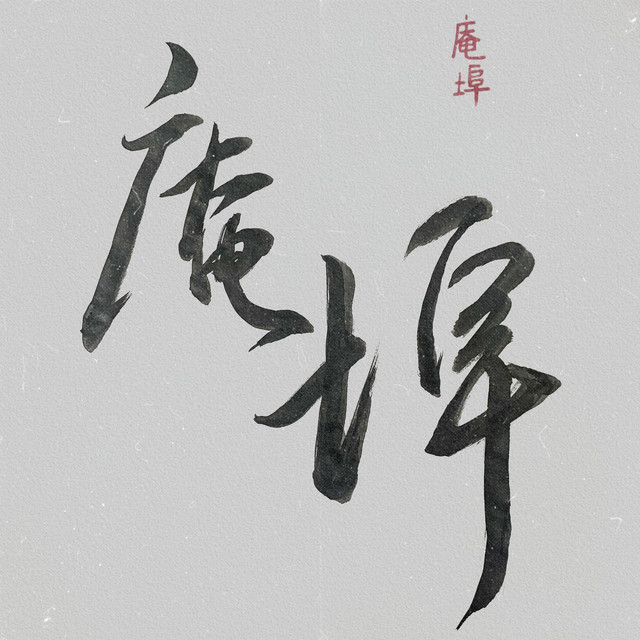 庵埠
庵埠